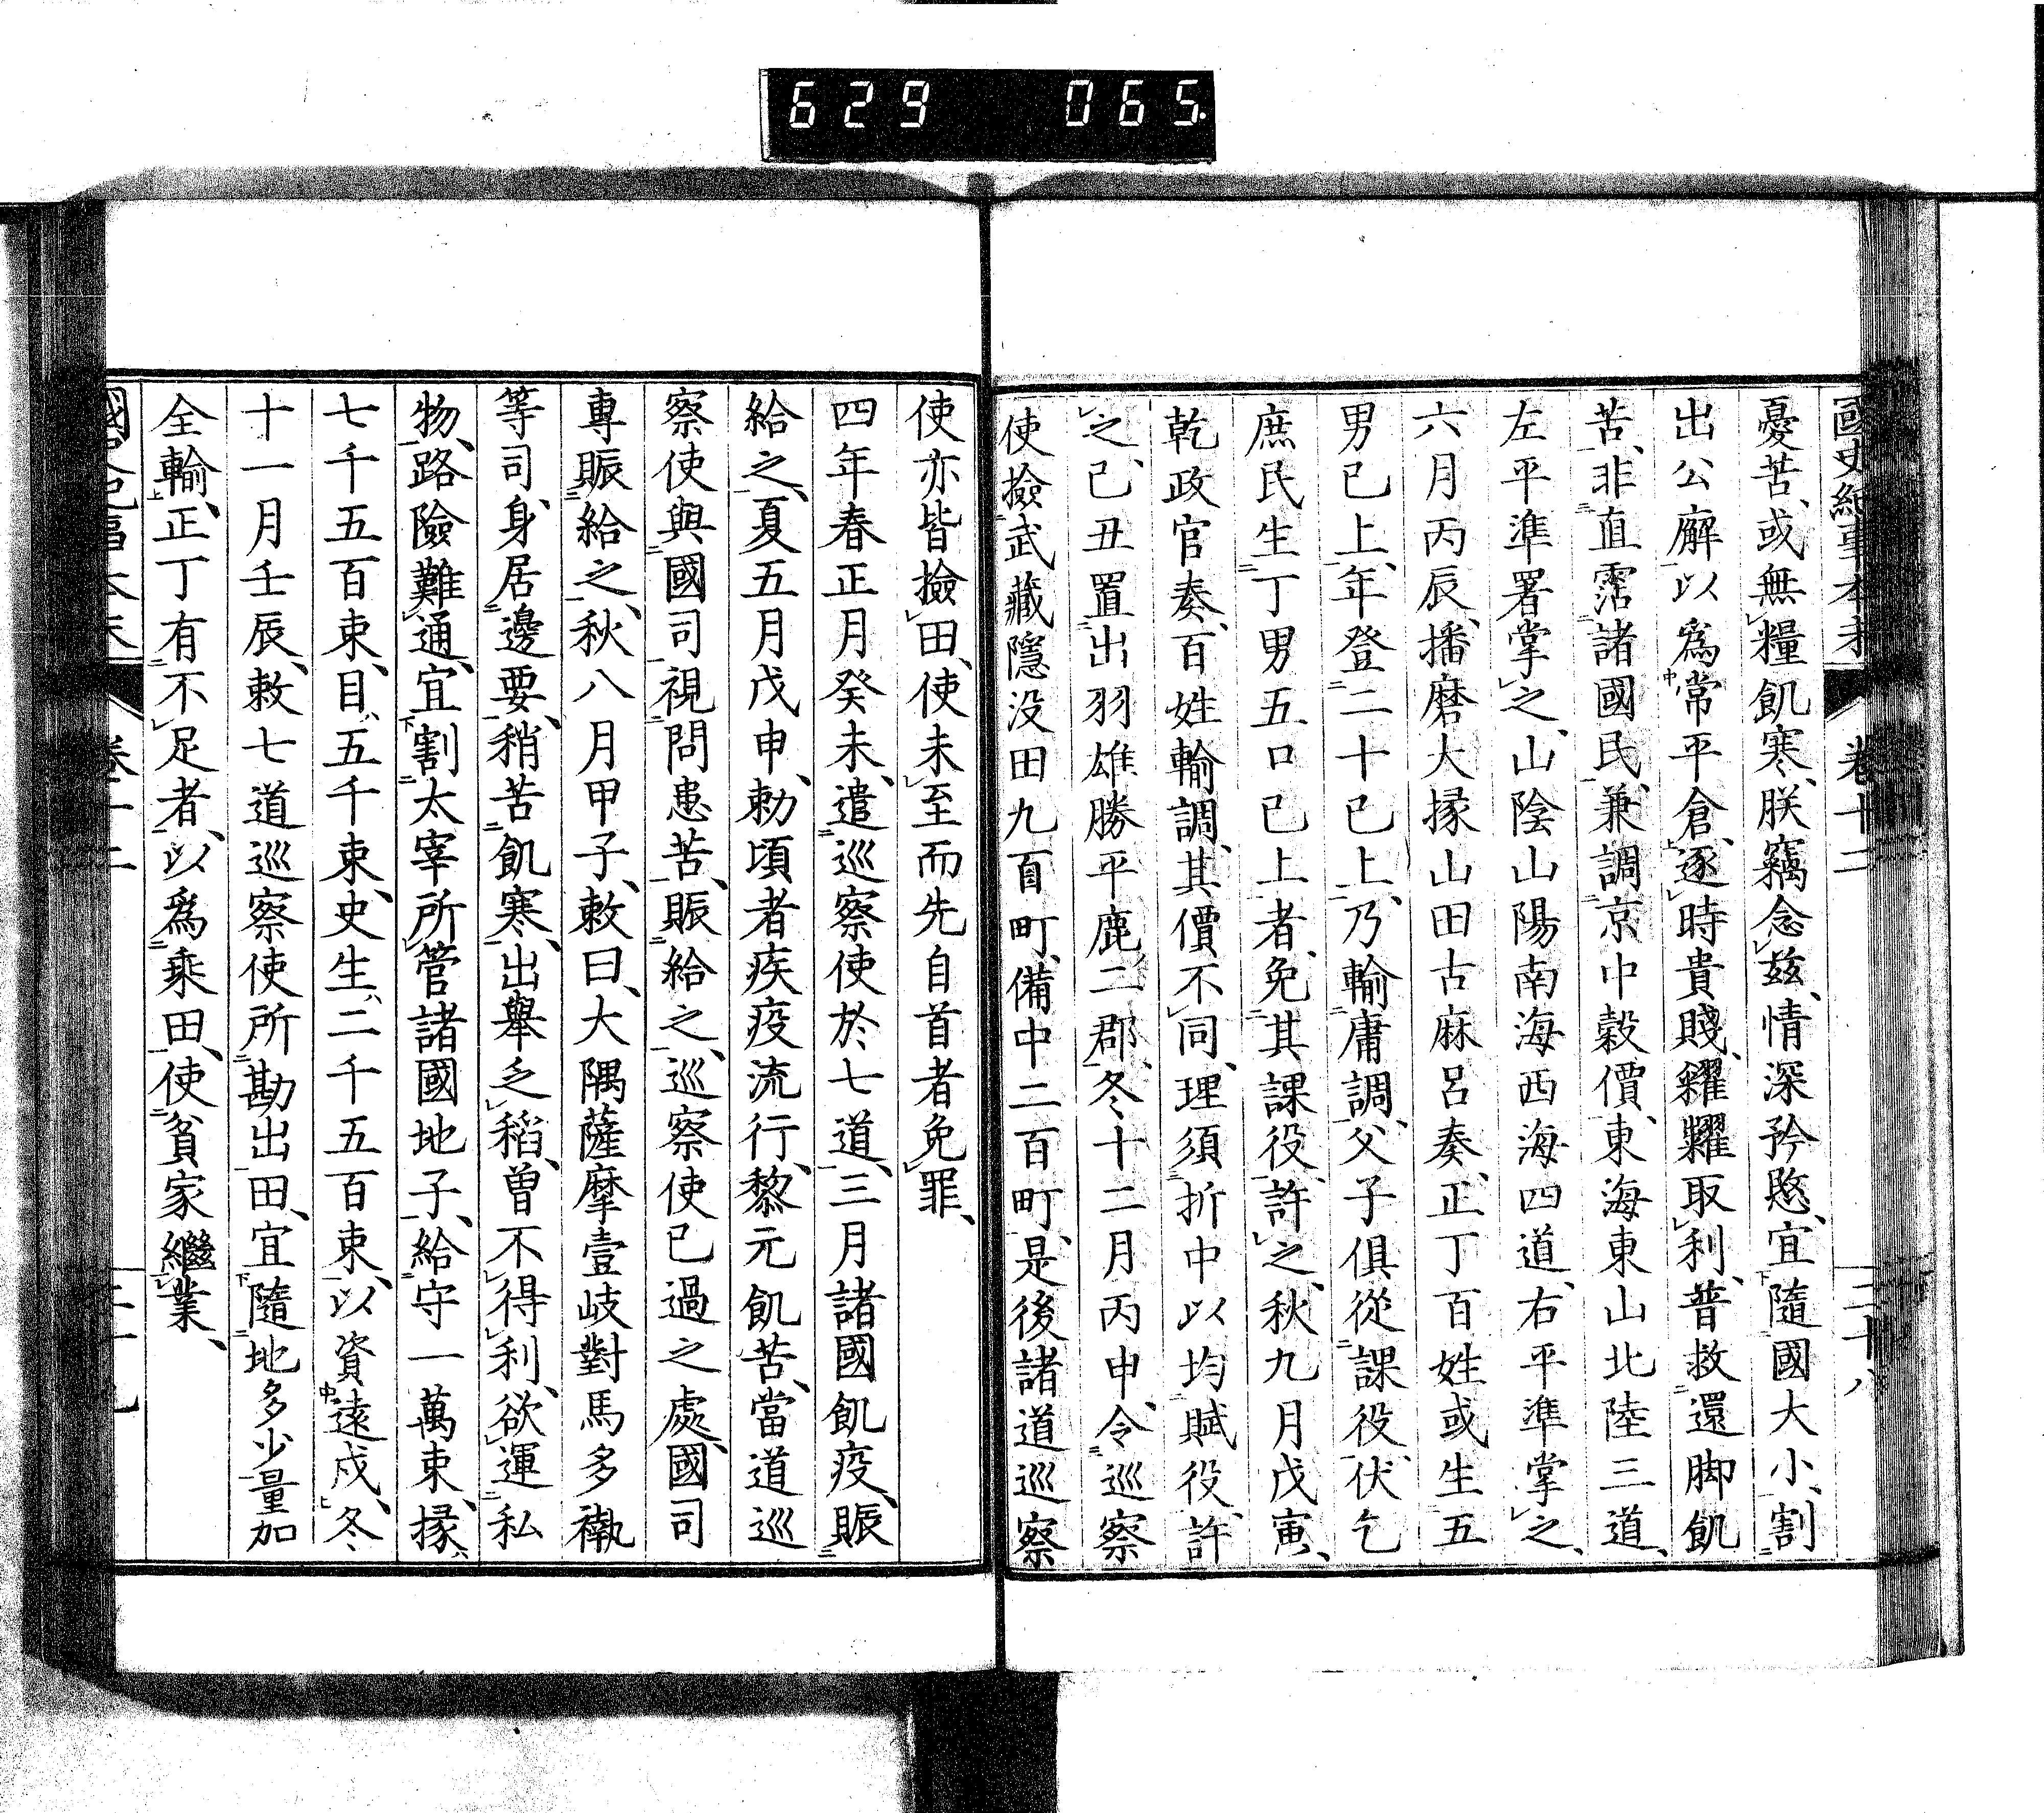 629 065
國史紀事本末 卷十二 二十八
憂苦、或無糧飢寒、朕竊念茲、情深矜愍、宜隨國大小、割
出公廨以爲常平倉、逐時貴賤、糴糶取利、普救還脚飢
苦、非直霑諸國民、兼調京中穀價、東海東山北陸三道、
左平準署掌之、山陰山陽南海西海四道、右平準掌之、
六月丙辰、播磨大掾山田古麻呂奏、正丁百姓或生五
男已上、年登二十已上、乃輸庸調、父子俱從課役、伏乞
庶民生丁男五口已上者、免其課役、許之、秋九月戊寅、
乾政官奏、百姓輸調、其價不同、理須折中以均賦役、許
之、己丑置出羽雄勝平鹿二郡、冬十二月丙申、令巡察
使撿武藏隱没田九百町、備中二百町、是後諸道巡察
使亦皆撿田、使未至而先自首者免罪、
四年春正月癸未、遣巡察使於七道、三月諸國飢疫、賑
給之、夏五月戊申、勅頃者疾疫流行、黎元飢苦、當道巡
察使與國司視問患苦、賑給之、巡察使已過之處、國司
專賑給之、秋八月甲子、敕曰、大隅薩摩壹岐對馬多褹
等司、身居邊要、稍苦飢寒、出擧乏稻、曾不得利、欲運私
物、路險難通、宜割太宰所管諸國地子、給守一萬束、掾
七千五百束、目五千束、史生二千五百束、以資遠戍、冬
十一月壬辰、敕七道巡察使所勘出田、宜隨地多少量加
全輸、正丁有不足者、以爲乘田、使貧家繼業、